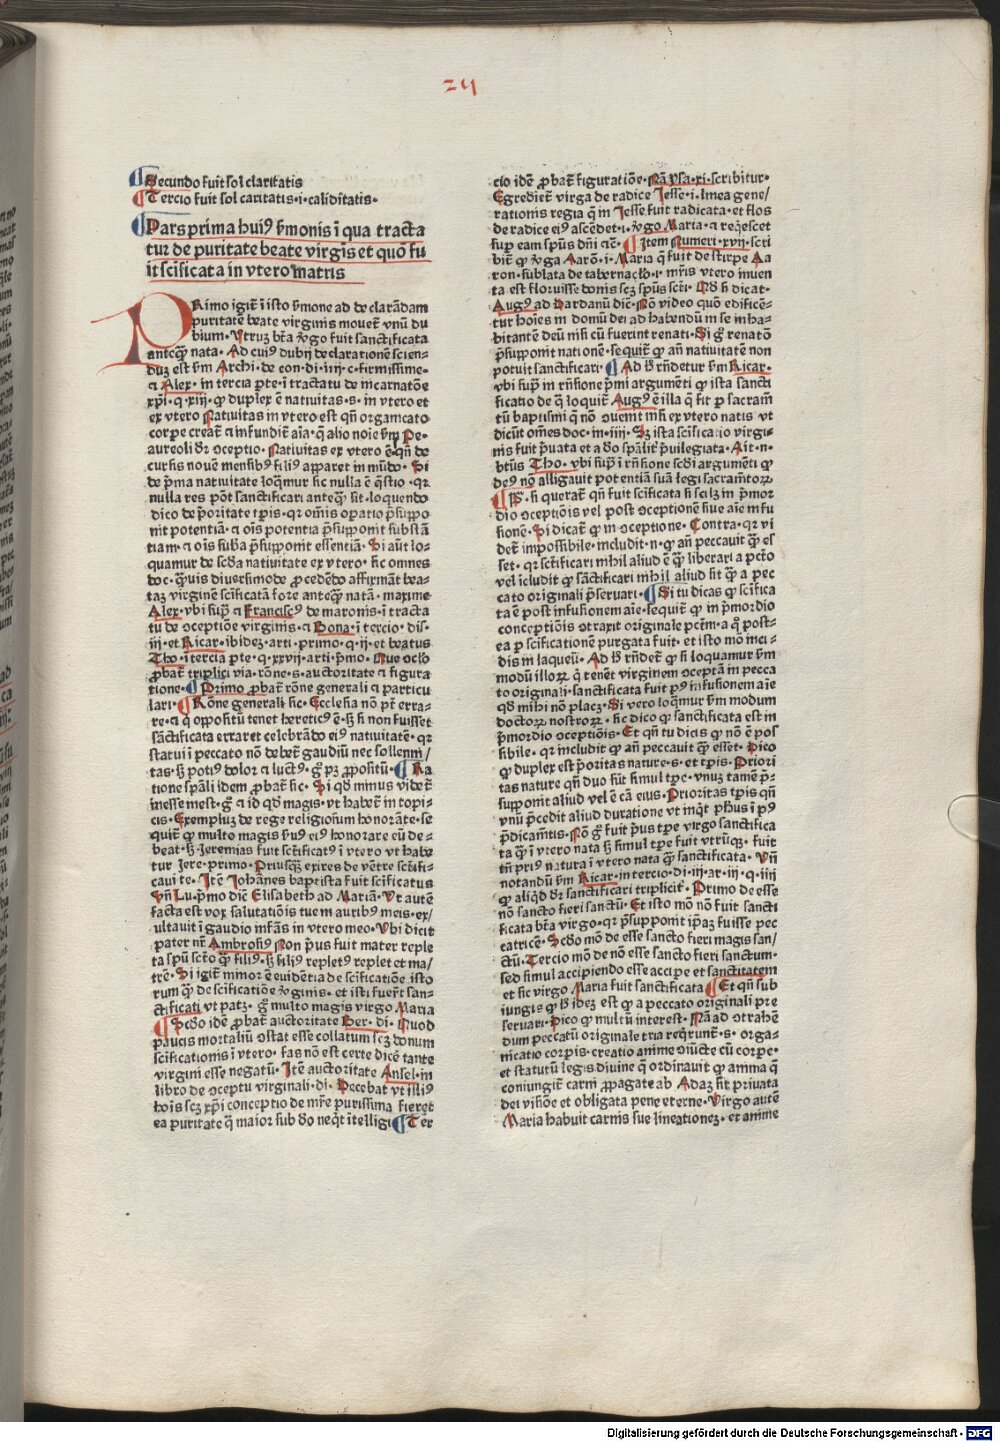 24
Secundo fuit sol claritatis
Tercio fuit sol caritatis·i·caliditatis·
Pars prima huiꝰ s̃monis ĩ qua tracta
tur de puritate beate virgĩs et quõ fu
it scĩficata in vtero matris
PRimo igit̃ ĩ isto s̃mone ad declarãdam
puritatẽ beate virginis mouet̃ vnũ du
bium· Vtruꝫ bt̃a ꝟgo fuit sanctificata
anteq̃ꝫ nata· Ad cuiꝰ dubij declarationẽ scien-
duꝫ est s̃m Archi· de con·di·iiij·c·firmissime·
⁊ Alex· in tercia ꝑte·ĩ tractatu de incarnatõe
xp̃i·q·xiij·ꝙ duplex ẽ natiuitas·s·in vtero et
ex vtero Natiuitas in vtero est qñ organicato
corꝑe creat̃ ⁊ infundit̃ aĩa·q̃ alio noĩe s̃m Pe-
aureoli dr̃ ɔceptio· Natiuitas ex vtero ẽ qñ de
cursus nouẽ mensibꝰ filiꝰ apparet in mũdo· Si
de p̃ma natiuitate loq̃mur sic nulla ẽ q̃stio·qꝛ
nulla res põt sanctificari anteq̃ꝫ sit·loquendo
dico de p̃oritate tp̃is·qꝛ oĩs oꝑatio p̃suppo
nit potentiã·⁊ oĩs potentia p̃supponit substã
tiam·⁊ oĩs sub̃a p̃supponit essentiã· Si aũt lo-
quamur de scd̃a natiuitate ex vtero·sic omnes
doc·q̃ꝫuis diuersimode ꝓcedẽdo affirmãt bea-
taꝫ virginẽ scĩficatã fore anteq̃ꝫ natã·maxime
Alex·vbi sup̃ ⁊ Franciscꝰ de maronis·ĩ tracta
tu de ɔceptiõe virginis·⁊ Bona·ĩ tercio·dis·
iij·et Ricar·ibideꝫ·arti·primo·q·ij·et beatus
Tho·ĩ tercia ꝑte·q·xxvij·arti·p̃mo· Que ɔclõ
ꝓbat̃ triplici via·rõne·s·auctoritate ⁊ figura
tione· Primo ꝓbat̃ rõne generali ⁊ particu
lari· Rõne generali sic· Ecclesia nõ pt̃ erra-
re·⁊ q̃ oppositũ tenet hereticꝰ ẽ·sꝫ si non fuisset
sãctificata erraret celebrãdo eiꝰ natiuitatẽ·qꝛ
statui ĩ peccato nõ debet̃ gaudiũ nec sollenni/
tas·sꝫ potiꝰ dolor ⁊ luctꝰ·g̃ pꝫ ꝓpositũ· Ra
tione sp̃ali idem ꝓbat̃ sic· Si qd̃ minus videt̃
inesse inest·g̃ ⁊ id qd̃ magis·vt habet̃ in topi-
cis· Exempluꝫ de rege religiosum honorãte·se
quit̃ ꝙ multo magis s̃uꝰ eiꝰ honorare eũ de-
beat·sꝫ Jeremias fuit sctificatꝰ ĩ vtero vt habe
tur Jere·primo· Priusq̃ꝫ exires de vẽtre sctĩfi-
caui te· Itẽ Johãnes baptista fuit scĩficatus
Vñ Lu·p̃mo dic̃ Elisabeth ad Mariã· Vt autẽ
facta est vox salutatiõis tue in auribꝰ meis·ex/
ultauit ĩ gaudio infãs in vtero meo· Vbi dicit
pater nr̃ Ambrosiꝰ Non p̃us fuit mater reple
ta spũ sctõ q̃ꝫ filiꝰ·sꝫ filiꝰ repletꝰ replet et ma/
trẽ· Si igit̃ minor ẽ euidẽtia de scĩficatiõe isto
rum q̃ꝫ de scĩficatiõe ꝟginis·et isti fuer̃t san-
ctificati vt patꝫ· g̃ multo magis virgo Maria
Scd̃o idẽ ꝓbat̃ auctoritate Ber·di· Quod
paucis mortaliũ ɔstat esse collatum scꝫ donum
scĩficationis ĩ vtero·fas nõ est certe dicẽ tante
virgini esse negatũ· Itẽ auctoritate Ansel·in
libro de ɔceptu virginali·di· Decebat vt illiꝰ
hoĩs scꝫ xp̃i conceptio de mr̃e purissima fieret
ea puritate q̃ maior sub deo neq̃t ĩtelligi Ter
cio idẽ ꝓbat̃ figuratiõe· Nã ysa·xi·scribitur·
Egrediet̃ virga de radice Jesse·i·linea gene/
rationis regia q̃ in Jesse fuit radicata·et flos
de radice eiꝰ ascẽdet·i·ꝟgo Maria·⁊ req̃escet
suꝑ eam spũs dñi ⁊cẽ· Item Numeri·xvij·scri
bit̃ ꝙ ꝟga Aarõ·i·Maria q̃ fuit de stirpe Aa
ron·sublata de tabernaclo·i·mr̃is vtero inuen
ta est floruisse donis scꝫ spũs scti· Qd̃ si dicat·
Augꝰ ad dardanũ dic̃· Nõ video quõ edificẽ-
tur hoĩes in domũ dei ad habendũ in se inha-
bitantẽ deũ nisi cũ fuerint renati· Si g̃ renatõ
p̃supponit nationẽ·sequit̃ ꝙ añ natiuitatẽ non
potuit sanctificari· Ad h̃ rñdetur s̃m Ricar·
vbi sup̃ in rñsione p̃mi argumẽti ꝙ ista sancti
ficatio de q̃ loquit̃ Augꝰ ẽ illa q̃ fit ꝑ sacram̃
tũ baptismi q̃ nõ ɔuenit nisi ex vtero natis vt
dicũt om̃es doc·in·iiij· Sꝫ ista scĩficatio virgi-
nis fuit p̃uata et a deo sp̃alit̃ p̃uilegiata· Ait·n·
btũs Tho·vbi sup̃ ĩ rñsione scd̃i argumẽti ꝙ
deꝰ nõ alligauit potentiã suã legi sacram̃toꝝ
Pꝰ·si querat̃ qñ fuit scĩficata si scilꝫ in p̃mor
dio ɔceptiõis vel post ɔceptionẽ siue aĩe infu
sionẽ· Si dicat̃ ꝙ in ɔceptione· Contra·qꝛ vi
det̃ impossibile·includit·n·ꝙ añ peccauit q̃ꝫ es
set·qꝛ sctĩficari nihil aliud ẽ q̃ꝫ liberari a pctõ
vel ĩcludit ꝙ sãctificari nihil aliud sit q̃ꝫ a pec
cato originali p̃seruari· Si tu dicas ꝙ scĩfica
ta ẽ post infusionem aĩe·sequit̃ ꝙ in p̃mordio
conceptiõis ɔtraxit originale pct̃m·a q̃ post-
ea ꝑ scĩficationẽ purgata fuit·et isto mõ inci-
dis in laqueũ· Ad h̃ rñdet̃ ꝙ si loquamur s̃m
modũ illoꝝ q̃ tenẽt virginem ɔceptã in pecca
to originali·sanctificata fuit pꝰ infusionem aĩe
qd̃ mihi nõ placꝫ· Si vero loq̃mur s̃m modum
doctoꝝ nostroꝝ·sic dico ꝙ sanctificata est in
p̃mordio ɔceptiõis· Et qñ tu dicis ꝙ nõ ẽ pos
sibile·qꝛ includit ꝙ añ peccauit q̃ꝫ esset· Dico
ꝙ duplex est p̃oritas nature·s·et tp̃is· Priori
tas nature qñ duo sũt simul tp̃e·vnuꝫ tamẽ p̃-
supponit aliud vel ẽ cã eius· Prioritas tp̃is qñ
vnũ p̃cedit aliud duratione vt inq̃t ph̃us ĩ pꝰ
p̃dicam̃tis· Nõ g̃ fuit p̃us tp̃e virgo sanctifica
ta q̃ꝫ ĩ vtero nata sꝫ simul tp̃e fuit vtrũqꝫ·fuit
tñ priꝰ natura ĩ vtero nata q̃ꝫ sanctificata· Vñ
notandũ s̃m Ricar·in tercio·di·iij·ar·iij·q·iiij
ꝙ aliqd̃ dr̃ sanctificari triplicit̃· Primo de esse
nõ sancto fieri sanctũ· Et isto mõ nõ fuit sancti
ficata bt̃a virgo·qꝛ p̃supponit ip̃aꝫ fuisse pec
catricẽ· Scd̃o mõ de esse sancto fieri magis san/
ctũ· Tercio mõ de nõ esse sancto fieri sanctum·
sed simul accipiendo esse accipe et sanctitatem
et sic virgo Maria fuit sanctificata Et qñ sub
iungis ꝙ h̃ ideꝫ est ꝙ a peccato originali pre
seruari· Dico ꝙ multũ interest· Nã ad ɔtrahẽ
dum peccatũ originale tria req̃runt̃·s·orga-
nicatio corpis·creatio anime ɔiũcte cũ corpe·
et statutũ legis diuine q̃ ordinauit ꝙ anima q̃
coniungit̃ carni ꝓpagate ab Adaꝫ sit priuata
dei visiõe et obligata pene eterne· Virgo autẽ
Maria habuit carnis sue lineationeꝫ·et anime
Digitalisierung gefördert durch die Deutsche Forschungsgemeinschaft - DFG